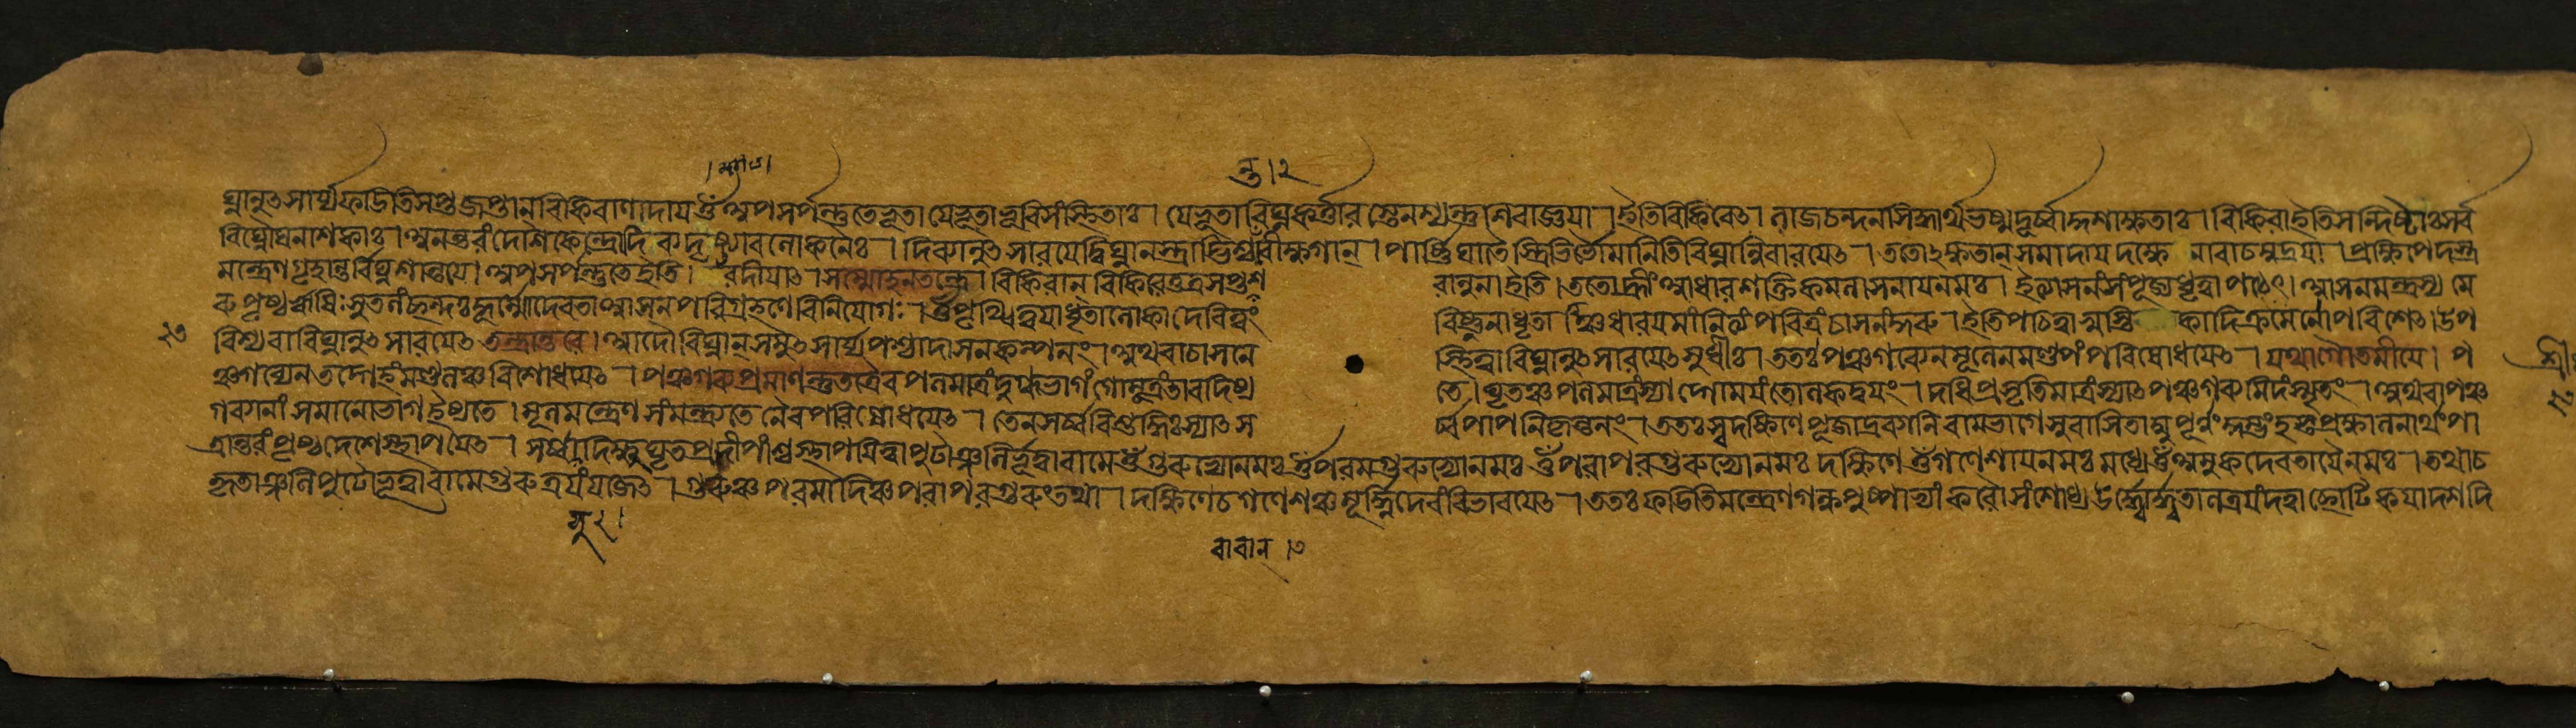 ঘ্নানুৎসার্য্যফডিতিসপ্তজপ্তান্বিকিরানাদায়ওঁঅপসর্পন্তুতেভূতাযেভূতাভুবিসংস্থিতাঃ । যেভূতাবিঘ্নকর্ত্তারস্তেনশ্যন্তুশিবাজ্ঞয়া । ইতিবিকিরেৎ । লাজচন্দনসিদ্ধার্থভস্মদূর্ব্বাঙ্কুশাক্ষতাঃ । বিকিরাইতিসন্দিষ্টাঃসর্ব
বিঘ্নৌঘনাশকাঃ । অনন্তরংদেশিকেন্দ্রোদিব্যদৃষ্ট্যাবলোকনৈঃ । দিব্যানুৎসারয়েদ্বিঘ্নানস্ত্রাদ্ভিশ্চান্তরীক্ষগান্ । পার্ষ্ণিঘাতৈস্ত্রিভির্ভৌমানিতিবিঘ্নান্নিবারয়েৎ । ততোঽক্ষতান্সমাদায়দক্ষে নারাচমুদ্রয়া । প্রক্ষিপেদস্ত্র
মন্ত্রেণগৃহান্তর্বিঘ্নশান্তয়ে । অপসর্পন্তুতেইতি । সম্মোহনতন্ত্রে । বিকিরান্বিকিরেত্তত্রসপ্ত রানুনাইতি । ততোহ্রীঁআধারশক্তিকমলাসনায়নমঃ । ইত্যাসনংসংপূজ্যধৃত্বাপঠেৎ । আসনমন্ত্রস্যমে
রুপৃষ্ঠঋষিঃসুতলংছন্দঃকূর্ম্মোদেবতাআসনপরিগ্রহণেবিনিয়োগঃ । ওঁপৃথ্বিত্বয়াধৃতালোকাদেবিত্বং বিষ্ণুনাধৃতা ত্বঞ্চধারয়মাংনিত্যংপবিত্রংচাসনংকুরু । ইতিপঠিত্বাস্বস্তি কাদিক্রমেনোপবিশেৎ । উপ
বিশ্যবাবিঘ্নানুৎসারয়েৎতন্ত্রান্তরে । আদৌবিঘ্নান্সমুৎসার্য্যপশ্চাদাসনকল্পনং । অথবাচাসনে স্থিত্বাবিঘ্নানুৎসারয়েৎসুধীঃ । ততঃপঞ্চগব্যেনমূলেনমণ্ডপংপরিষোধয়েৎ । যথাগৌতমীয়ে । প
ঞ্চগব্যেনতদ্দেহংমণ্ডলঞ্চবিশোধয়েৎ । পঞ্চগব্যপ্রমাণন্তুতত্রৈবপলমাত্রংদুগ্ধভাগংগোমূত্রংতাবদিষ্য তে । ঘৃতঞ্চপলমাত্রংস্যাদ্গোময়ংতোলকদ্বয়ং । দধিপ্রসৃতিমাত্রংস্যাৎপঞ্চগব্যমিদংস্মৃতং । অথবাপঞ্চ
গব্যানাংসমানোভাগইষ্যতে । মূলমন্ত্রেণসংমন্ত্র্যতেনৈবপরিষোধয়েৎ । তেনসর্ব্ববিশুদ্ধিঃস্যাৎস র্ব্বপাপনিকৃন্তনং । ততঃস্বদক্ষিণেপূজাদ্রব্যানিবামভাগেসুবাসিতাম্বুপূর্ণংকুম্ভংহস্তপ্রক্ষালনার্থংপা
ত্রান্তরংপৃষ্ঠদেশেস্থাপয়েৎ । সর্ব্বাদিক্ষুঘৃতপ্রদীপাংশ্চস্থাপয়িত্বাপুটাঞ্জলির্ভূত্বাবামেওঁগুরুভ্যোনমঃওঁপরমগুরুভ্যোনমঃওঁপরাপরগুরুভ্যোনমঃদক্ষিণেওঁগণেশায়নমঃমধ্যেওঁঅমুকদেবতায়ৈনমঃ । তথাচ
কৃতাঞ্জলিপুটোভূত্বাবামেগুরুত্রয়ংযজেৎ । গুরুঞ্চপরমাদিঞ্চপরাপরগুরুংতথা । দক্ষিণেচগণেশঞ্চমূর্দ্ধ্নিদেবংবিভাবয়েৎ । ততঃফডিতিমন্ত্রেণগন্ধপুষ্পাভ্যাংকরৌসংশোধ্যঊর্দ্ধ্বোর্দ্ধ্বতালত্রয়ংদত্বাছোটিকয়াদশদি